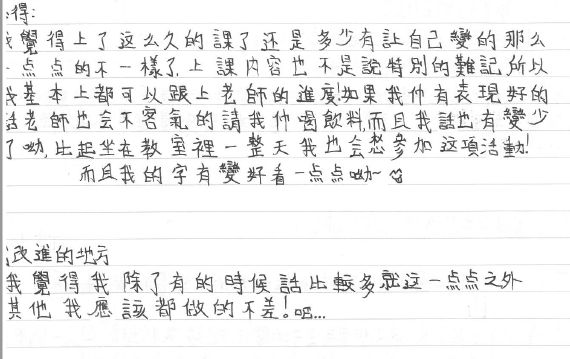 得:
覺得上了这么久的課了还是多少有讓自己變的那么
一点点的不一樣了,上課内容也不是說特別的難記,所以
我基本上都可以跟上老師的進度!如果我们有表現好的
話老師也会不客氣的請我们喝飲料,而且我話也有變少
了呦,比起坐在教室裡一整天我也会想參加这項活動!
而且我的字有變好看一点点呦~♡
改進的地方
我覺得我除了有的時候話比較多就这一点点之外
其他我應該都做的不差!呃...